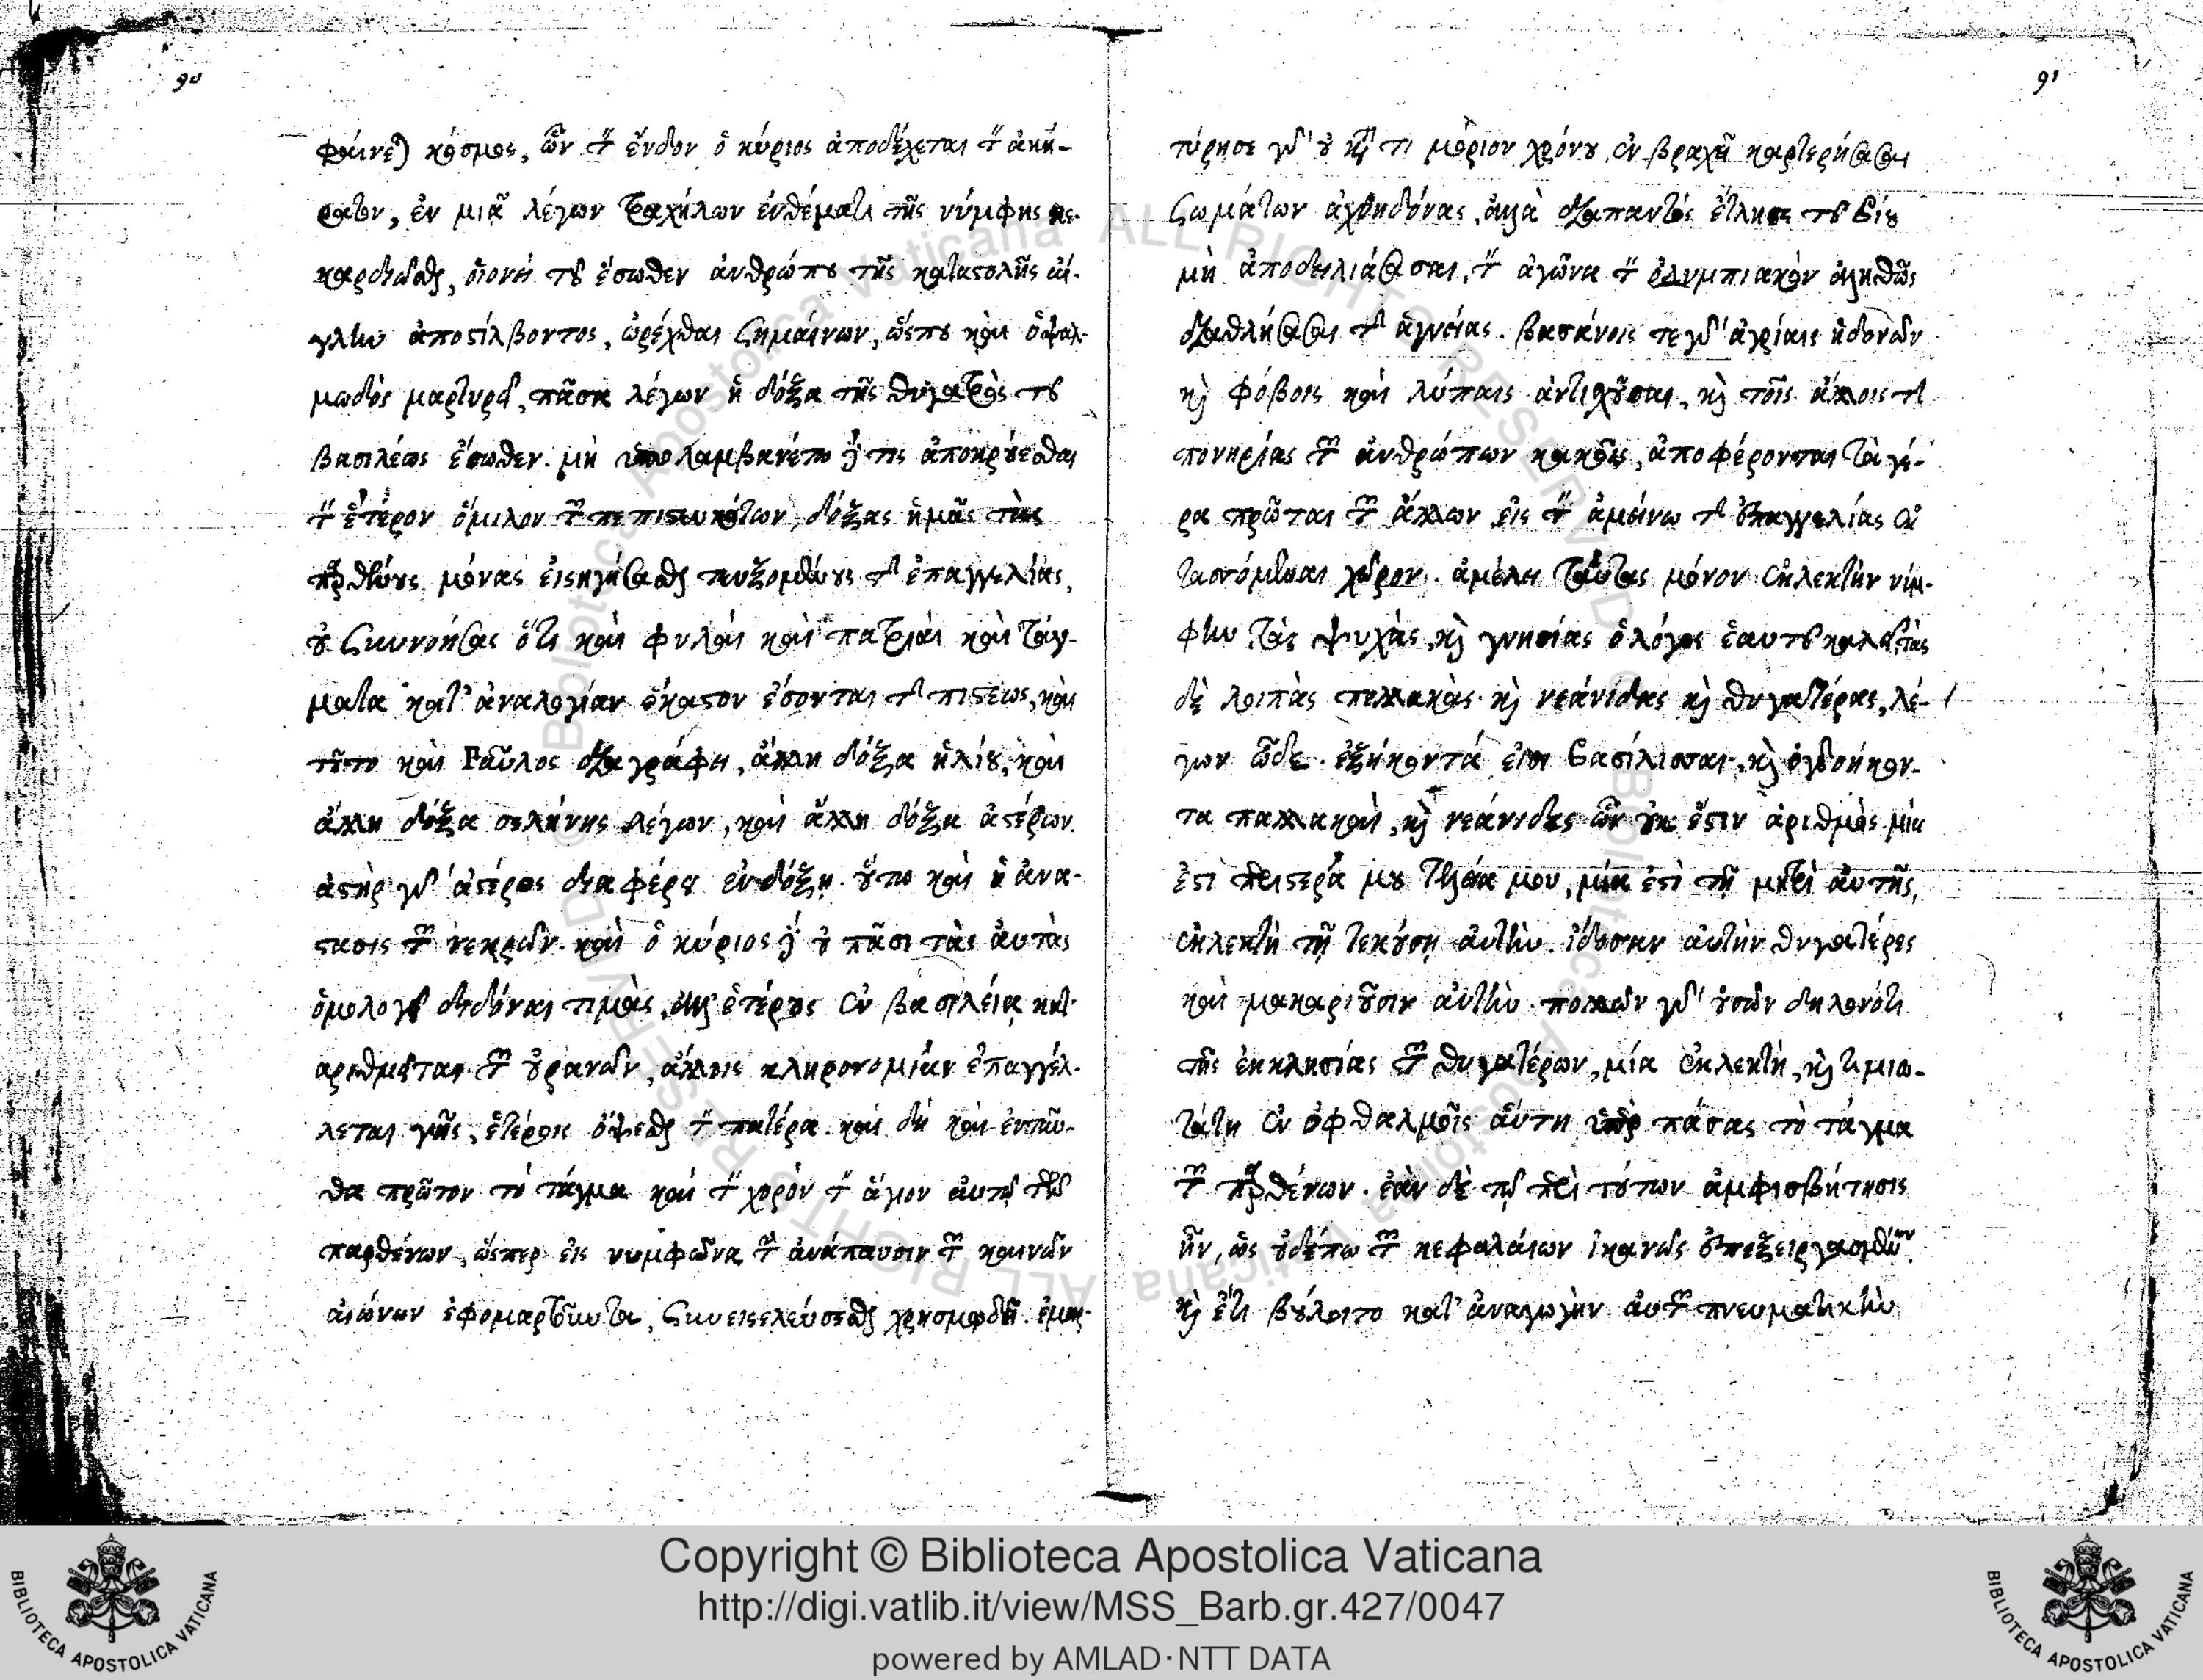 90
φαίνεται κόσμος, ὧν τὸν ἔνδον ὁ κύριος ἀποδέχεται τὸν ἀκή-
ρατον, ἐν μιᾷ λέγων τραχήλων ἐνθέματι τῆς νύμφης κε-
καρδιῶσθαι, οἱονεὶ τοῦ ἔσωθεν ἀνθρώπου τῆς καταστολῆς αἴ-
γλην ἀποστίλβοντος, ὠρέχθαι σημαίνων, ὥσπου καὶ ὁ ψαλ-
μωδὸς μαρτυρεῖ, πᾶσα λέγων ἡ δόξα τῆς θυγατρὸς τοῦ
βασιλέως ἔσωθεν. μὴ ὑπολαμβανέτω δέ τις ἀποκρούεσθαι
τὸν ἕτερον ὅμιλον τῶν πεπιστευκότων, δόξας ἡμᾶς τὰς
παρθένους μόνας εἰσηγήσασθαι τευξομένους τῆς ἐπαγγελίας,
οὐ συννοήσας ὅτι καὶ φυλαὶ καὶ πατριαὶ καὶ τάγ-
ματα κατ' ἀναλογίαν ἕκαστον ἔσονται τῆς πίστεως, καὶ
τοῦτο καὶ Παῦλος διαγράφει, ἄλλη δόξα ἡλίου, καὶ
ἄλλη δόξα σελήνης λέγων, καὶ ἄλλη δόξα ἀστέρων.
ἀστὴρ γὰρ ἀστέρος διαφέρει ἐν δόξῃ. οὕτω καὶ ἡ ἀνά-
στασις τῶν νεκρῶν. καὶ ὁ κύριος δὲ οὐ πᾶσι τὰς αὐτὰς
ὁμολογεῖ διδόναι τιμάς, ἀλλ' ἑτέρους ἐν βασιλείᾳ κατ-
αριθμεῖται τῶν οὐρανῶν, ἄλλοις κληρονομίαν ἐπαγγέλ-
λεται γῆς, ἑτέροις ὄψεσθαι τὸν πατέρα. καὶ δὴ καὶ ἐνταῦ-
θα πρῶτον τὸ τάγμα καὶ τὸν χορὸν τὸν ἅγιον αὐτῷ τῶν
παρθένων, ὥσπερ εἰς νυμφῶνα τὴν ἀνάπαυσιν τῶν καινῶν
αἰώνων ἐφομαρτοῦντα, συνεισελεύσεσθαι χρησμωδεῖ. ἐμαρ-
91
τύρησε γὰρ οὐ κατά τι μόριον χρόνου ἐν βραχεῖ καρτερήσασαι
σωμάτων ἀχθηδόνας, ἀλλὰ διὰ παντὸς ἔτλησε τοῦ βίου
μὴ ἀποδειλιάσασαι, τὸν ἀγῶνα τὸν ὀλυμπιακὸν ἀληθῶς
διαθλήσασαι τῆς ἁγνείας. βασάνοις τε γὰρ ἀγρίαις ἡδονῶν
καὶ φόβοις καὶ λύπαις ἀντισχοῦσαι, καὶ τοῖς ἄλλοις τῆς
πονηρίας τῶν ἀνθρώπων κακοῖς, ἀποφέρονται τὰ γέ-
ρα πρῶται τῶν ἄλλων εἰς τὸν ἀμείνω τῆς ἐπαγγελίας κα-
τασσόμεναι χῶρον. ἀμέλει ταύτας μόνον ἐκλεκτὴν νύμ-
φην τὰς ψυχάς, καὶ γνησίας ὁ λόγος ἑαυτοῦ καλεῖ τὰς
δὲ λοιπὰς παλλακὰς καὶ νεάνιδας καὶ θυγατέρας, λέ-
γων ὧδε. ἑξήκοντά εἰσι βασίλισσαι, καὶ ὀγδοήκον-
τα παλλακαί, καὶ νεάνιδες ὧν οὐκ ἔστιν ἀριθμὸς μία
ἐστὶ περιστερά μου τελεία μου, μία ἐστὶ τῇ μητρὶ αὐτῆς,
ἐκλεκτὴ τῇ τεκούσῃ αὐτήν. ἴδωσαν αὐτὴν θυγατέρες
καὶ μακαριοῦσιν αὐτήν. πολλῶν γὰρ οὐσῶν δηλονότι
τῆς ἐκκλησίας τῶν θυγατέρων, μία ἐκλεκτή, καὶ τιμιω-
τάτη ἐν ὀφθαλμοῖς αὕτη ὑπὲρ πάσας τὸ τάγμα
τῶν παρθένων. ἐὰν δέ τῳ περὶ τούτων ἀμφισβήτησις
ἦν, ὡς οὐδέπω τῶν κεφαλαίων ἱκανῶς ἐπεξειργασμένων
καὶ ἔτι βούλοιτο κατ' ἀναγωγὴν αὐτῶν πνευματικὴν
Copyright © Biblioteca Apostolica Vaticana
http://digi.vatlib.it/view/MSS_Barb.gr.427/0047
powered by AMLAD·NTT DATA
BIBLIOTECA APOSTOLICA VATICANA
BIBLIOTECA APOSTOLICA VATICANA